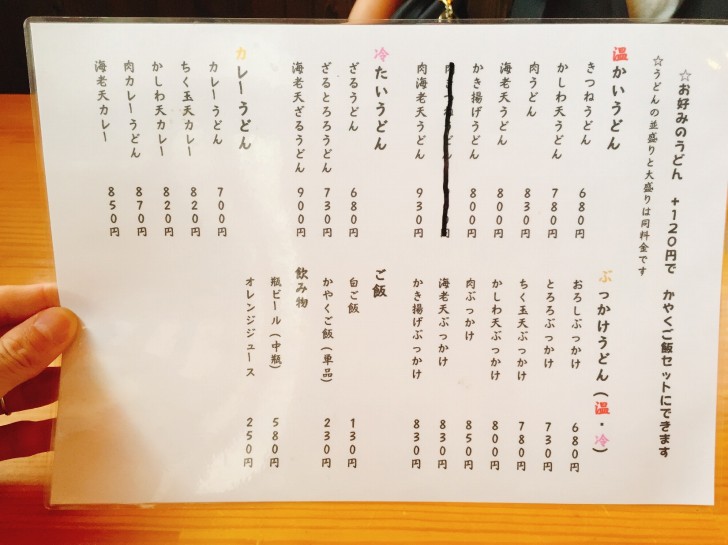 ☆お好みのうどん +120円で かやくご飯セットにできます
☆うどんの並盛りと大盛りは同料金です
温かいうどん
きつねうどん 680円
かしわ天うどん 780円
肉うどん 830円
海老天うどん 800円
かき揚げうどん 800円
肉海老天うどん 930円
冷たいうどん
ざるうどん 680円
ざるとろろうどん 730円
海老天ざるうどん 900円
カレーうどん
カレーうどん 700円
ちく玉天カレー 820円
かしわ天カレー 820円
肉カレーうどん 870円
海老天カレー 850円
ぶっかけうどん(温・冷)
おろしぶっかけ 680円
とろろぶっかけ 730円
ちく玉天ぶっかけ 780円
かしわ天ぶっかけ 800円
肉ぶっかけ 850円
海老天ぶっかけ 830円
かき揚げぶっかけ 830円
ご飯
白ご飯 130円
かやくご飯(単品) 230円
飲み物
瓶ビール(中瓶) 580円
オレンジジュース 250円